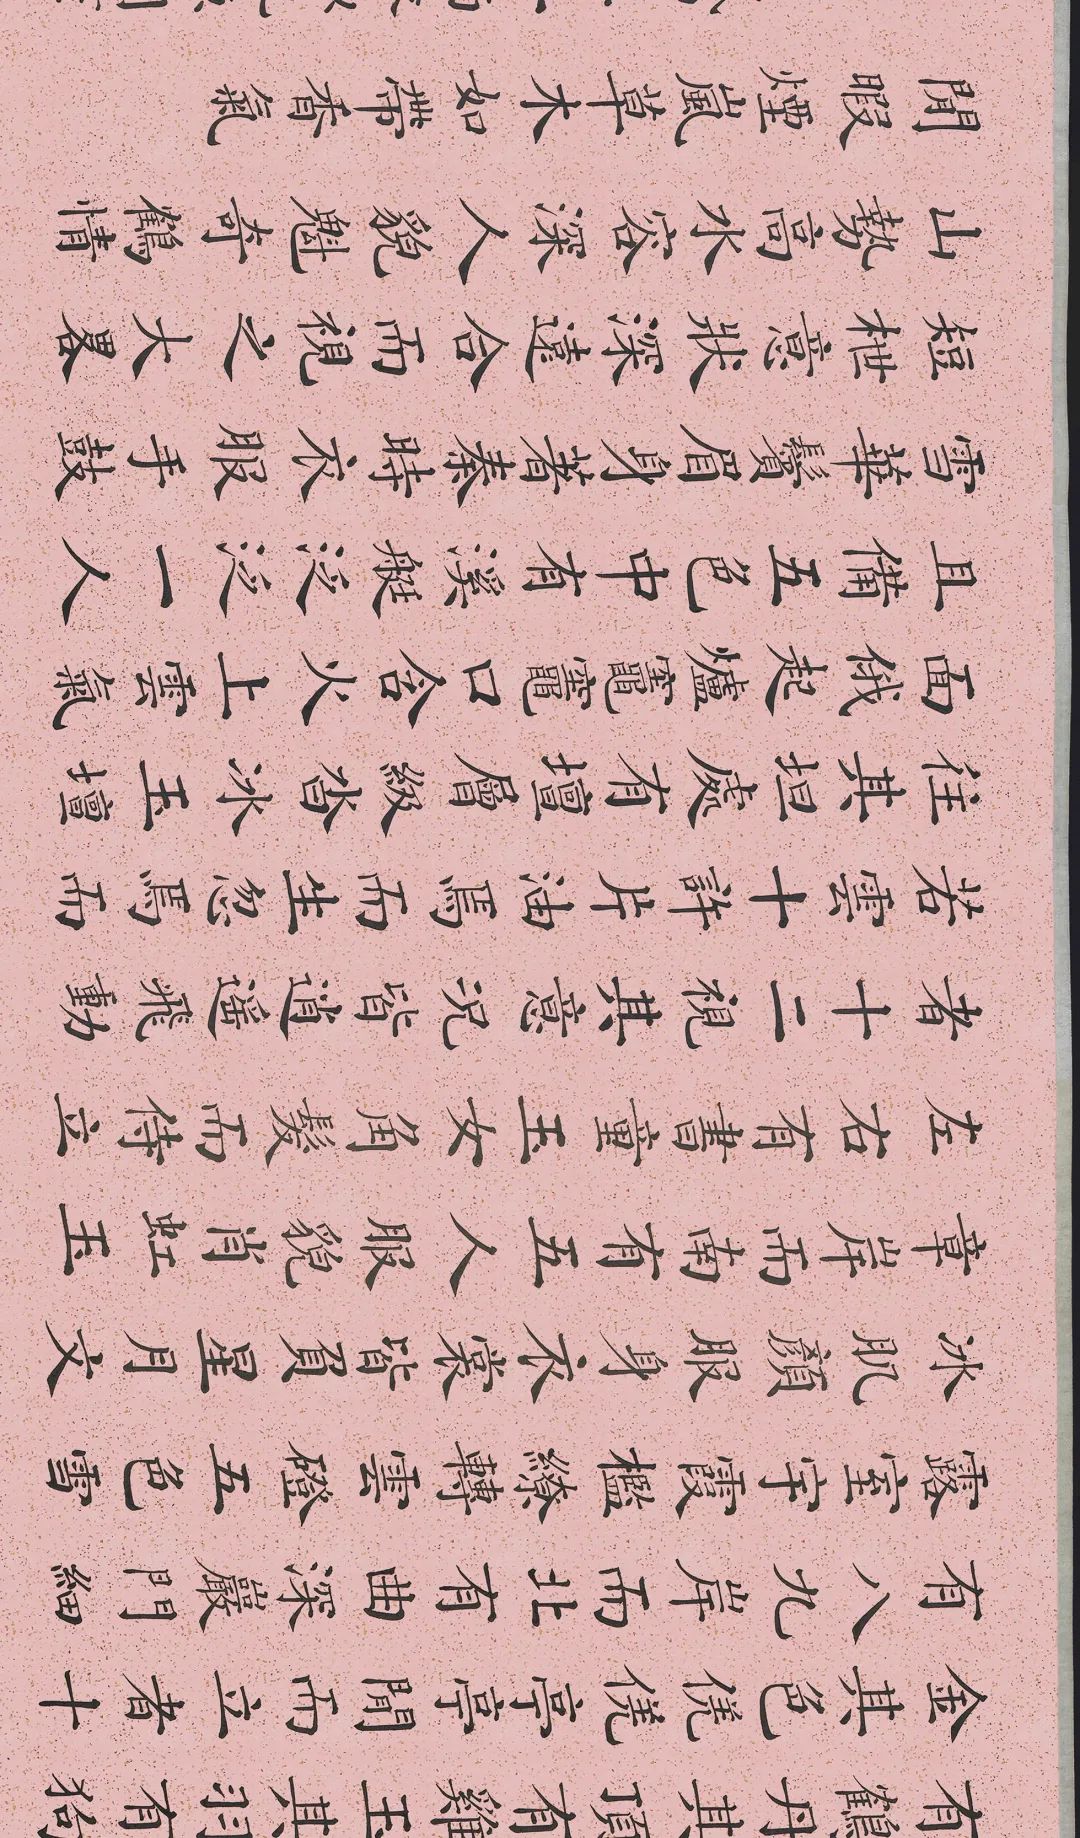 有鶴丹其頂有雞玉其羽有狗
金其色傞傞亭亭閒而立者十
有八九岸而北有曲深巖門細
露室宇霞檻繚轉雲磴五色雪
冰肌顏服身衣裳皆負星月文
章岸而南有五人服貌肖虹玉
左右有書童玉女角髮而侍立
者十二視其意況皆逍遙飛動
若雲十許片油焉而生忽焉而
往其坦處有壇層級沓冰玉壇
面俄起爐竈竈口含火上雲氣
且備五色中有溪艇泛泛一人
雪華鬢眉身著秦時衣服手鼓
短枻意狀深遠合而視之大畧
山勢高水容深人貌魁奇鶴情
閒暇煙嵐草木如帶香氣